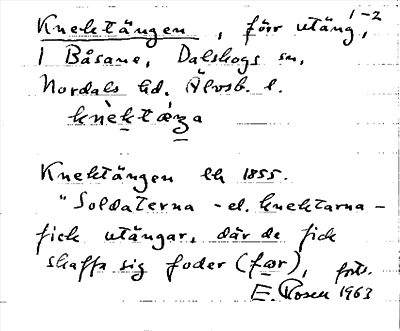 1-2
Knektängen, förr utäng,
i Båsane, Dalskogs sn,
Nordals hd. Älvsb. l.
knèktæŋa
Knektängen lk 1855.
"Soldaterna - el. knektarna -
fick utängar, där de fick
skaffa sig foder (fœr), forts.
E. Rosen 1963